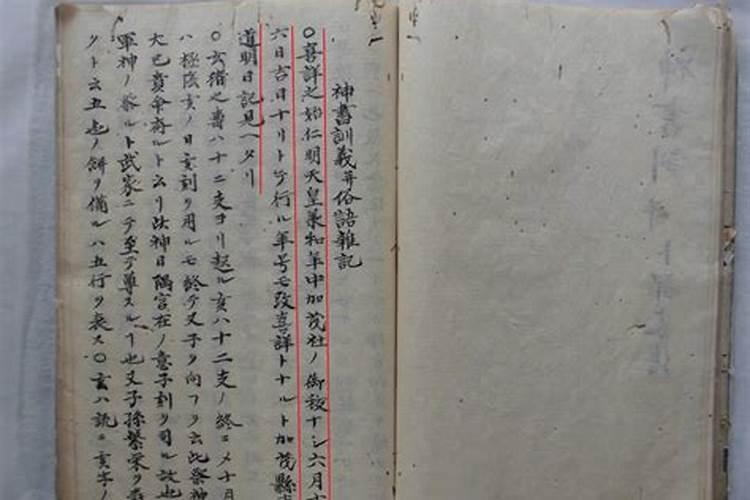 神書訓義并俗語雜記
〇喜詳之始仁明天皇承和年中加茂社ノ御秡ナシ六月十
六日吉日ナリトテ行ル年号モ改喜詳トナルト加茂縣
道明日記見ヘタリ
〇亥猪之壽ハ十二支ヨリ起ル亥ハ十二支ノ終ニメ十月
ハ極陰亥ノ日亥刻ヲ用ルモ終テ又子ヲ向フヲ云此祭神
大己貴命斎ルト云リ此神日隅宮在ノ意子刻ヲ司ル故也
軍神ノ祭ルト武家ニテ至テ尊スルヿ也又子孫繁栄ヲ
クト云五色ノ餅ヲ備ルハ五行ヲ表ス〇亥ハ訛ニ亥字ノ